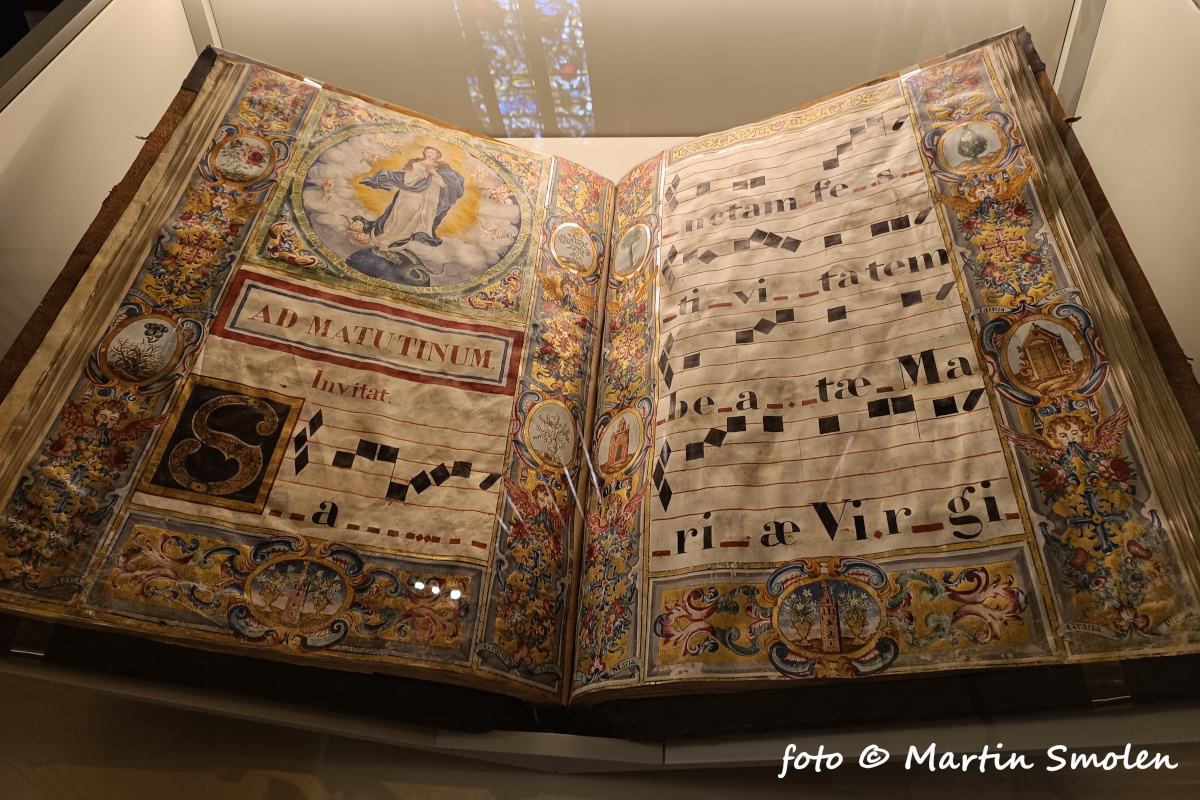 AD MATUTINUM.
Invitat.
S
_ _ a _ _ _ _ _ _ _ _
_ nctam fe _ s _
_ ti _ vi _ _ ta tem
be _ a _ . _ tæ _ Ma
_ ri _ æ Vi.r _ gi _
Gratia
Maria
Gratia
foto © Martin Smolen